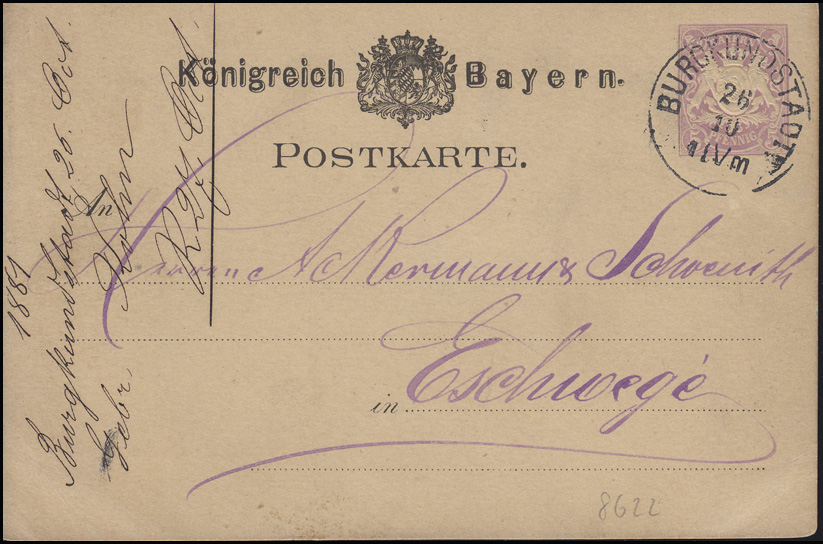 Königreich Bayern.
POSTKARTE.
BURGKUNDSTADT
26
10
PFENNIG
An
Herren Ackermann & Schoenith
in Eschwege
1881
Burgkundstadt 26. Oct.
Gebr.
8622